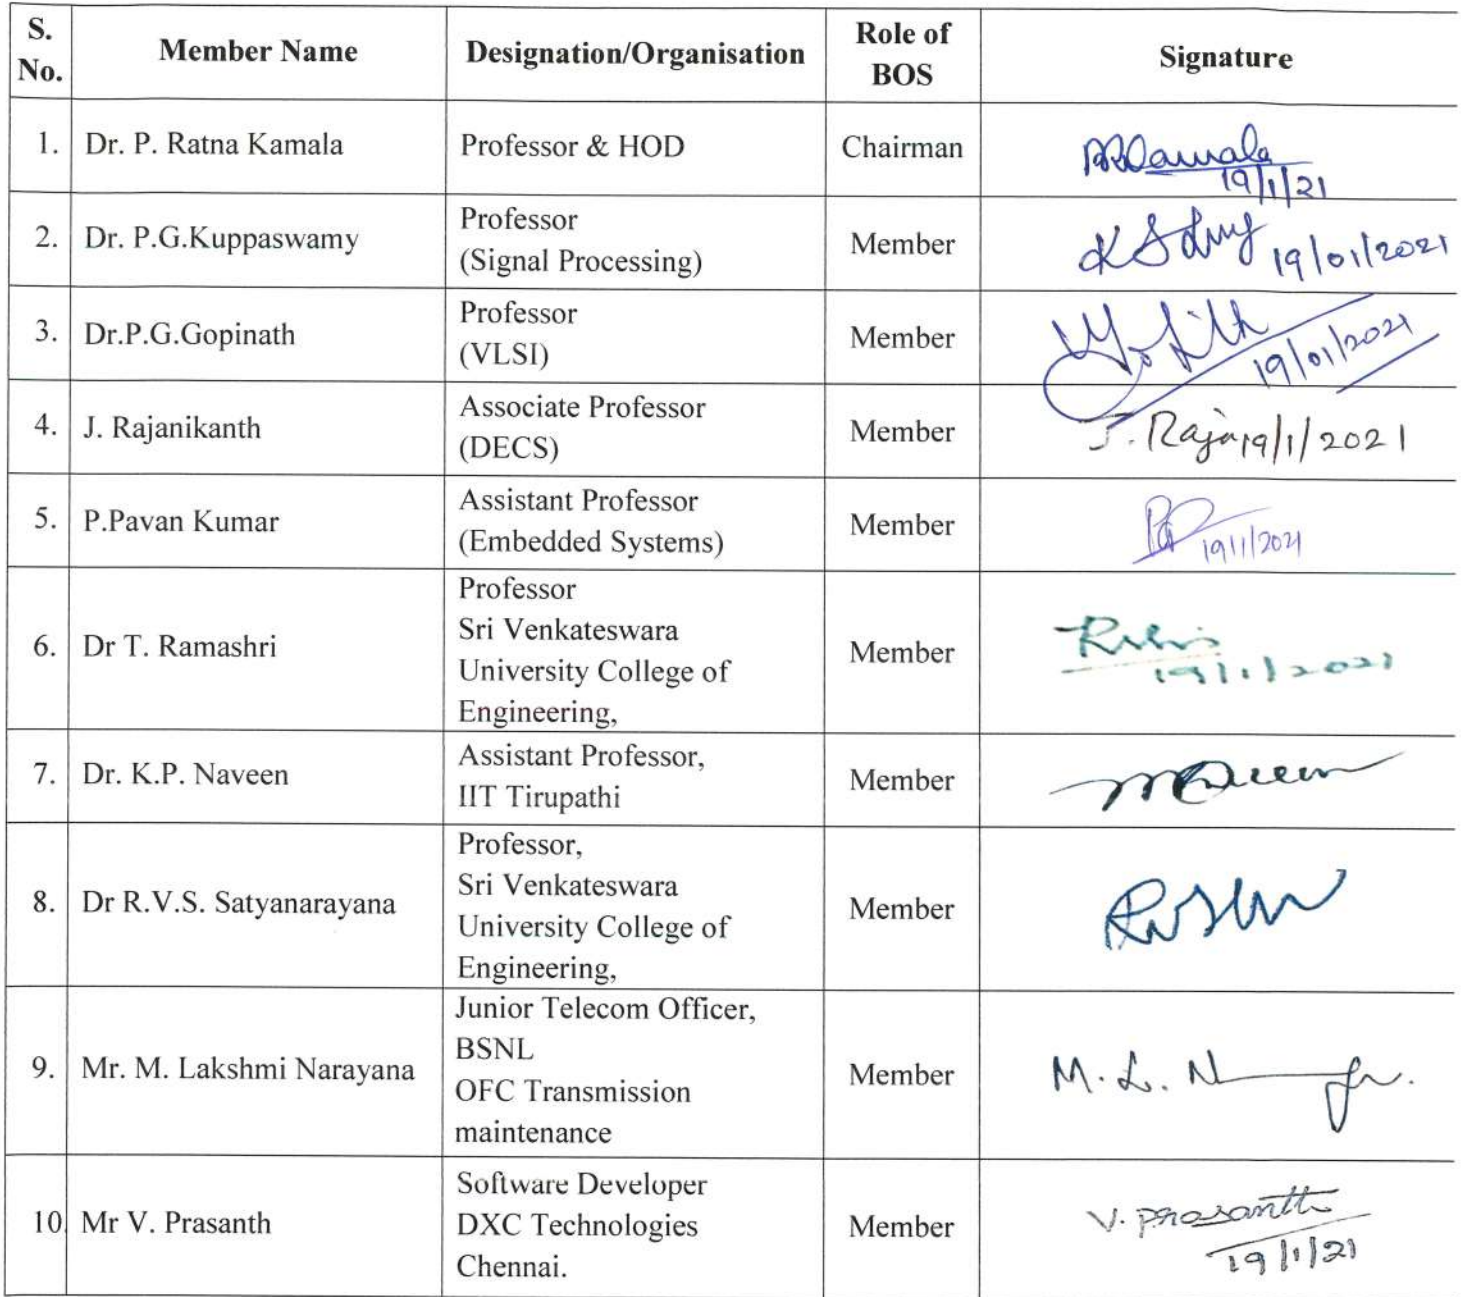 S. No. Member Name Designation/Organisation Role of BOS Signature
1. Dr. P. Ratna Kamala Professor & HOD Chairman
19/1/21
2. Dr. P.G.Kuppaswamy Professor
(Signal Processing) Member 19/01/2021
3. Dr.P.G.Gopinath Professor
(VLSI) Member 19/01/2021
4. J. Rajanikanth Associate Professor
(DECS) Member J. Raja 19/1/2021
5. P.Pavan Kumar Assistant Professor
(Embedded Systems) Member 19/1/2021
6. Dr T. Ramashri Professor
Sri Venkateswara
University College of
Engineering, Member 19/1/2021
7. Dr. K.P. Naveen Assistant Professor,
IIT Tirupathi Member
8. Dr R.V.S. Satyanarayana Professor,
Sri Venkateswara
University College of
Engineering, Member
9. Mr. M. Lakshmi Narayana Junior Telecom Officer,
BSNL
OFC Transmission
maintenance Member M. L. N
10. Mr V. Prasanth Software Developer
DXC Technologies
Chennai. Member V. Prasanth
19/1/21